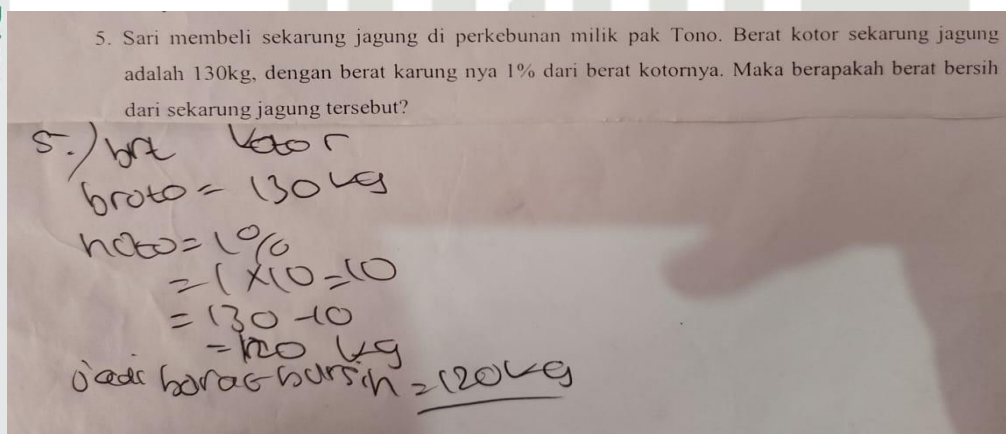 5. Sari membeli sekarung jagung di perkebunan milik pak Tono. Berat kotor sekarung jagung
adalah 130kg, dengan berat karung nya 1% dari berat kotornya. Maka berapakah berat bersih
dari sekarung jagung tersebut?
5./ brt kotor
broto = 130 kg
neto = 1%
= 1 x 10 = 10
= 130 - 10
= 120 kg
Jadi borat bursih = 120 kg